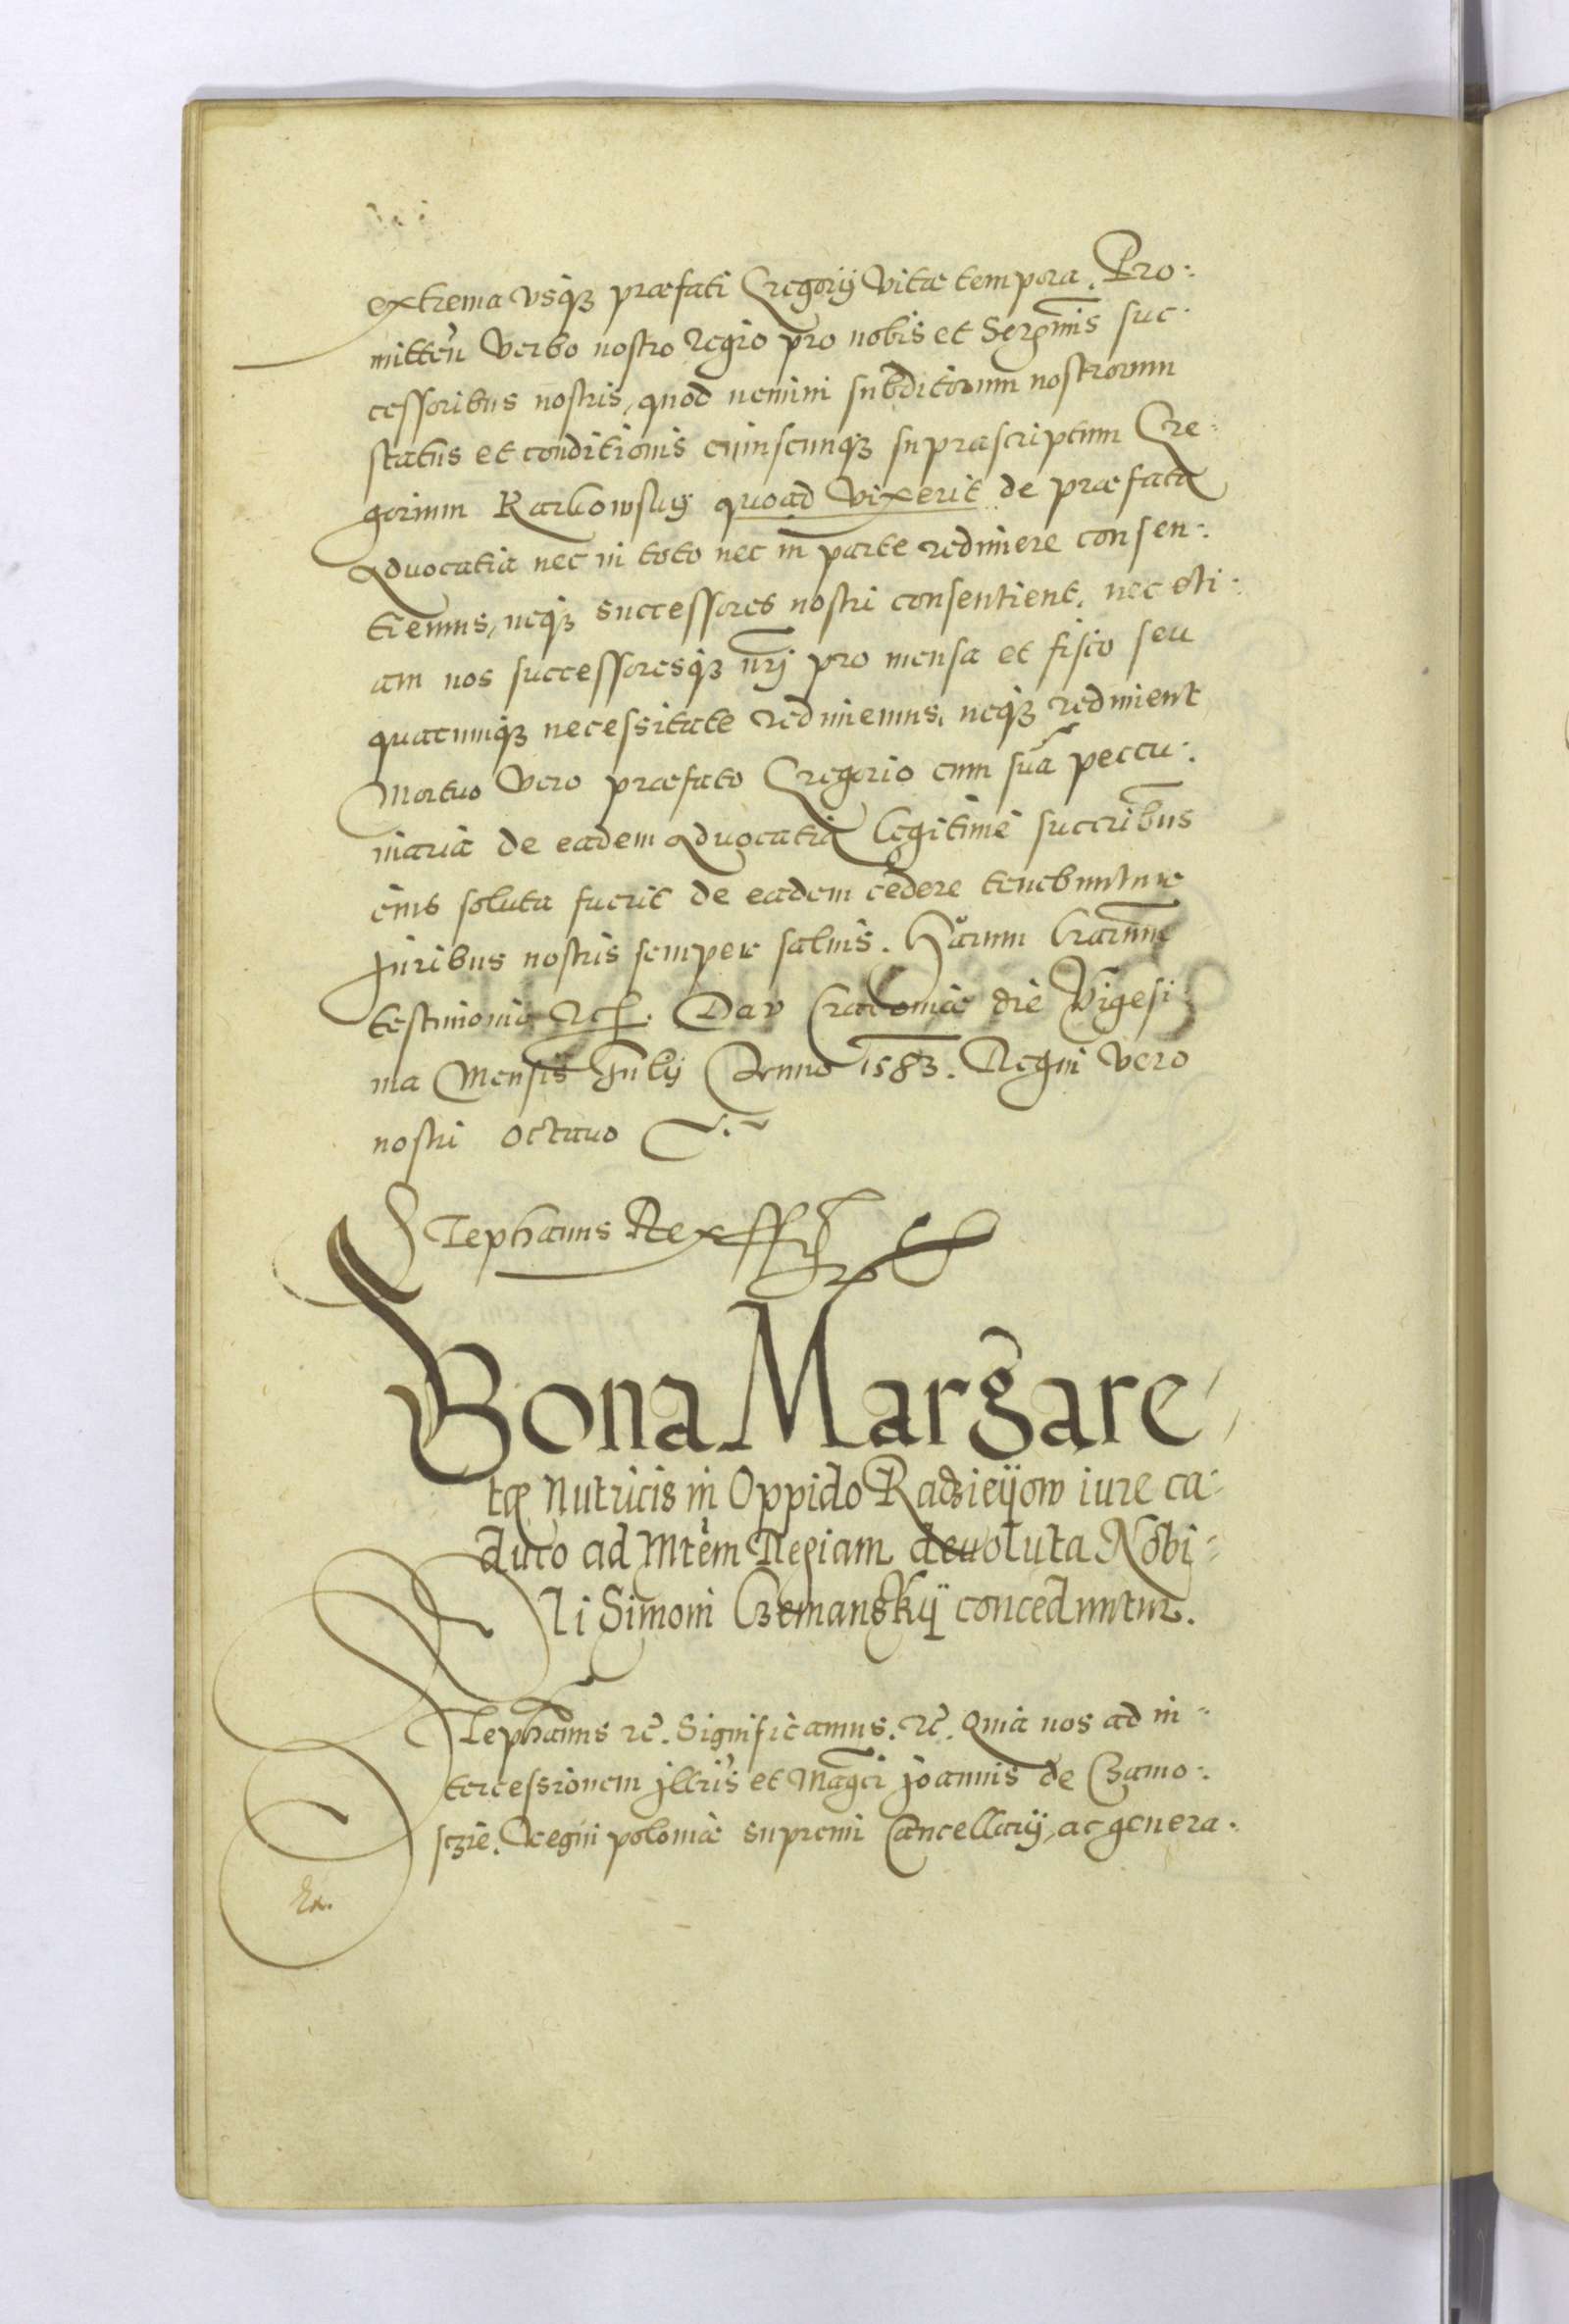 extrema vsq₃ præfati Gregorij vitæ tempora. Pro:
mitteñ verbo nostro Regio pro nobis et Serg̃mis suc:
cessoribus nostris, quod nemini subditorum nostrorum
status et conditionis cuiuscunq₃ suprascriptum Gre:
gorium Karkowsky quoad vixerit de præfata
Aduocatia nec in toto nec in parte redimere consen:
tiemus, neq₃ successores nostri consentient. nec eti:
am nos successoresq₃ nr̃j pro mensa et fisco seu
quacunq₃ necessitate redimemus, neq₃ rediment
Mortuo vero præfato Gregorio cum sũa peccu:
niaria de eadem Aduocatia legitimè succr̃ibus
eius soluta fuerit de eadem cedere tenebuntur
Juribus nostris semper saluis. Harum l̃rarum
testimonio Rc̃. Dat̃ Cracouiæ die Vigesi
ma Mensis Julij Anno 1583. Regni vero
nostri octauo
Stephanus Rex sst
Bona Margare
tæ Nutricis in Oppido Radzieijow iure ca:
duco ad Mtẽm Regiam deuoluta Nobi:
li Simoni Czemanskij conceduntur.
Stephanus rc̃. Significamus. rc̃. Quia nos ad in:
tercessionem Jllr̃is et Mag̃ci Joannis de Czamo:
sczie. Regni poloniæ supremi Cancellarij, ac genera:
Ex.